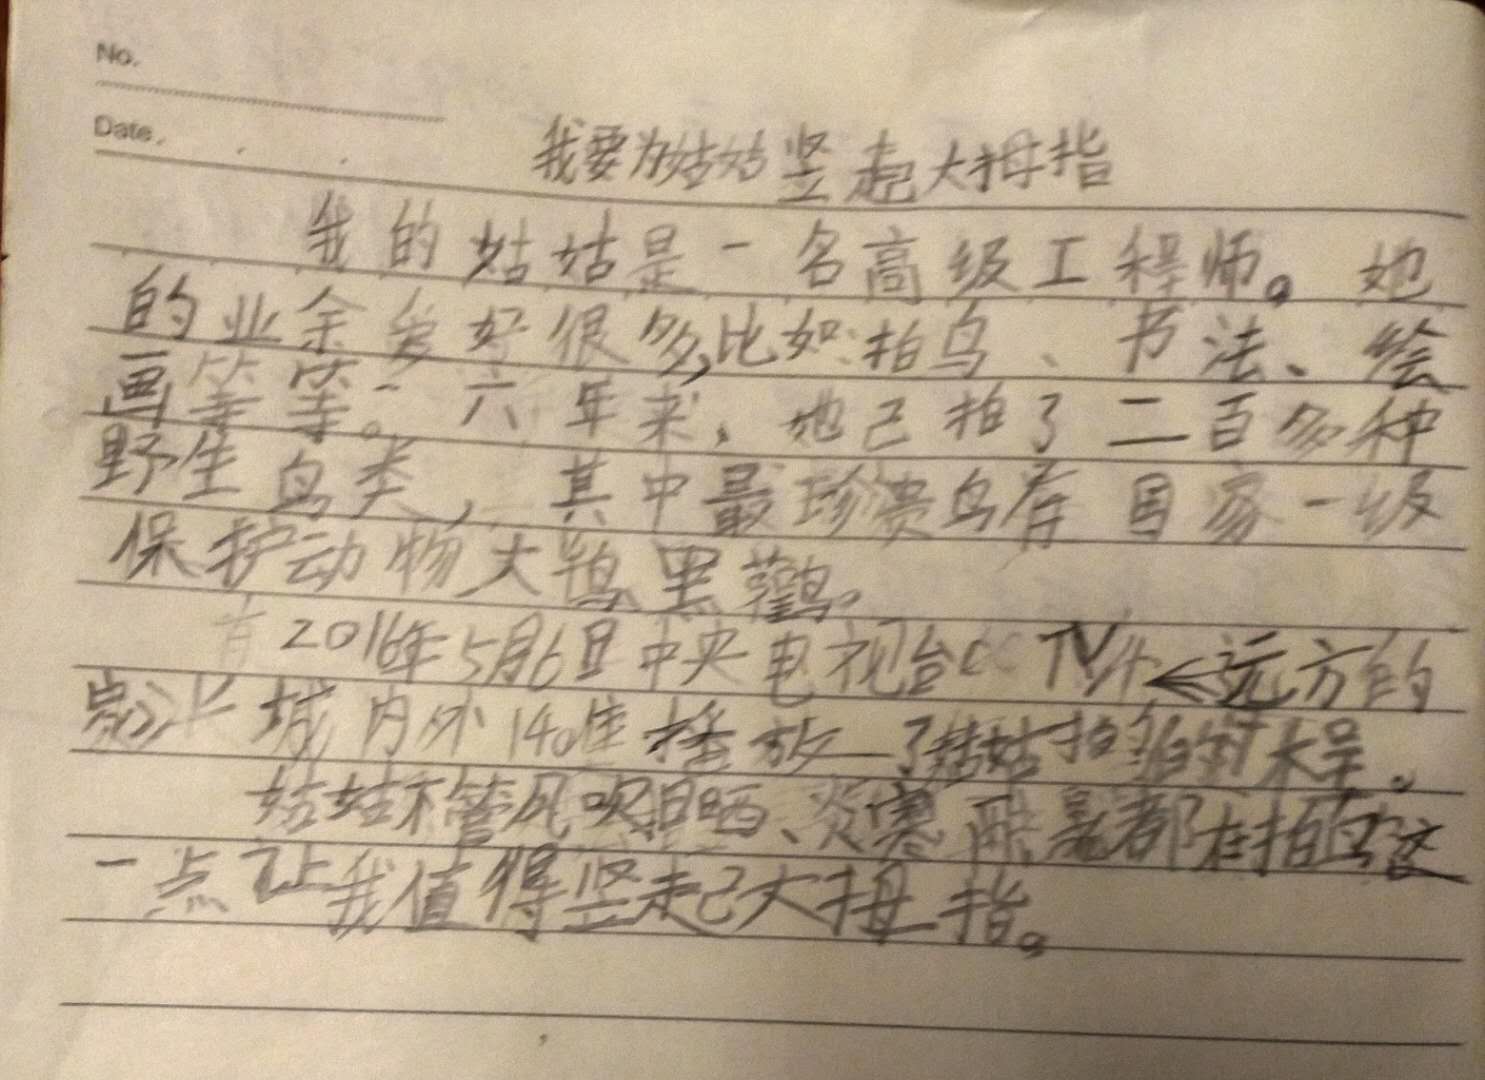 No.
Date.
我要为姑姑竖起大拇指
我的姑姑是一名高级工程师。她
的业余爱好很多,比如:拍鸟、书法、绘
画等等。六年来,她己拍了二百多种
野生鸟类,其中最珍贵鸟有国家一级
保护动物大鸨黑鹳。
2016年5月6日中央电视台CCTV 远方的
家 长城内外140集播放了姑姑拍鸟的
姑姑不管风吹日晒、炎寒酷暑都在拍鸟这
一点让我值得竖起大拇指。